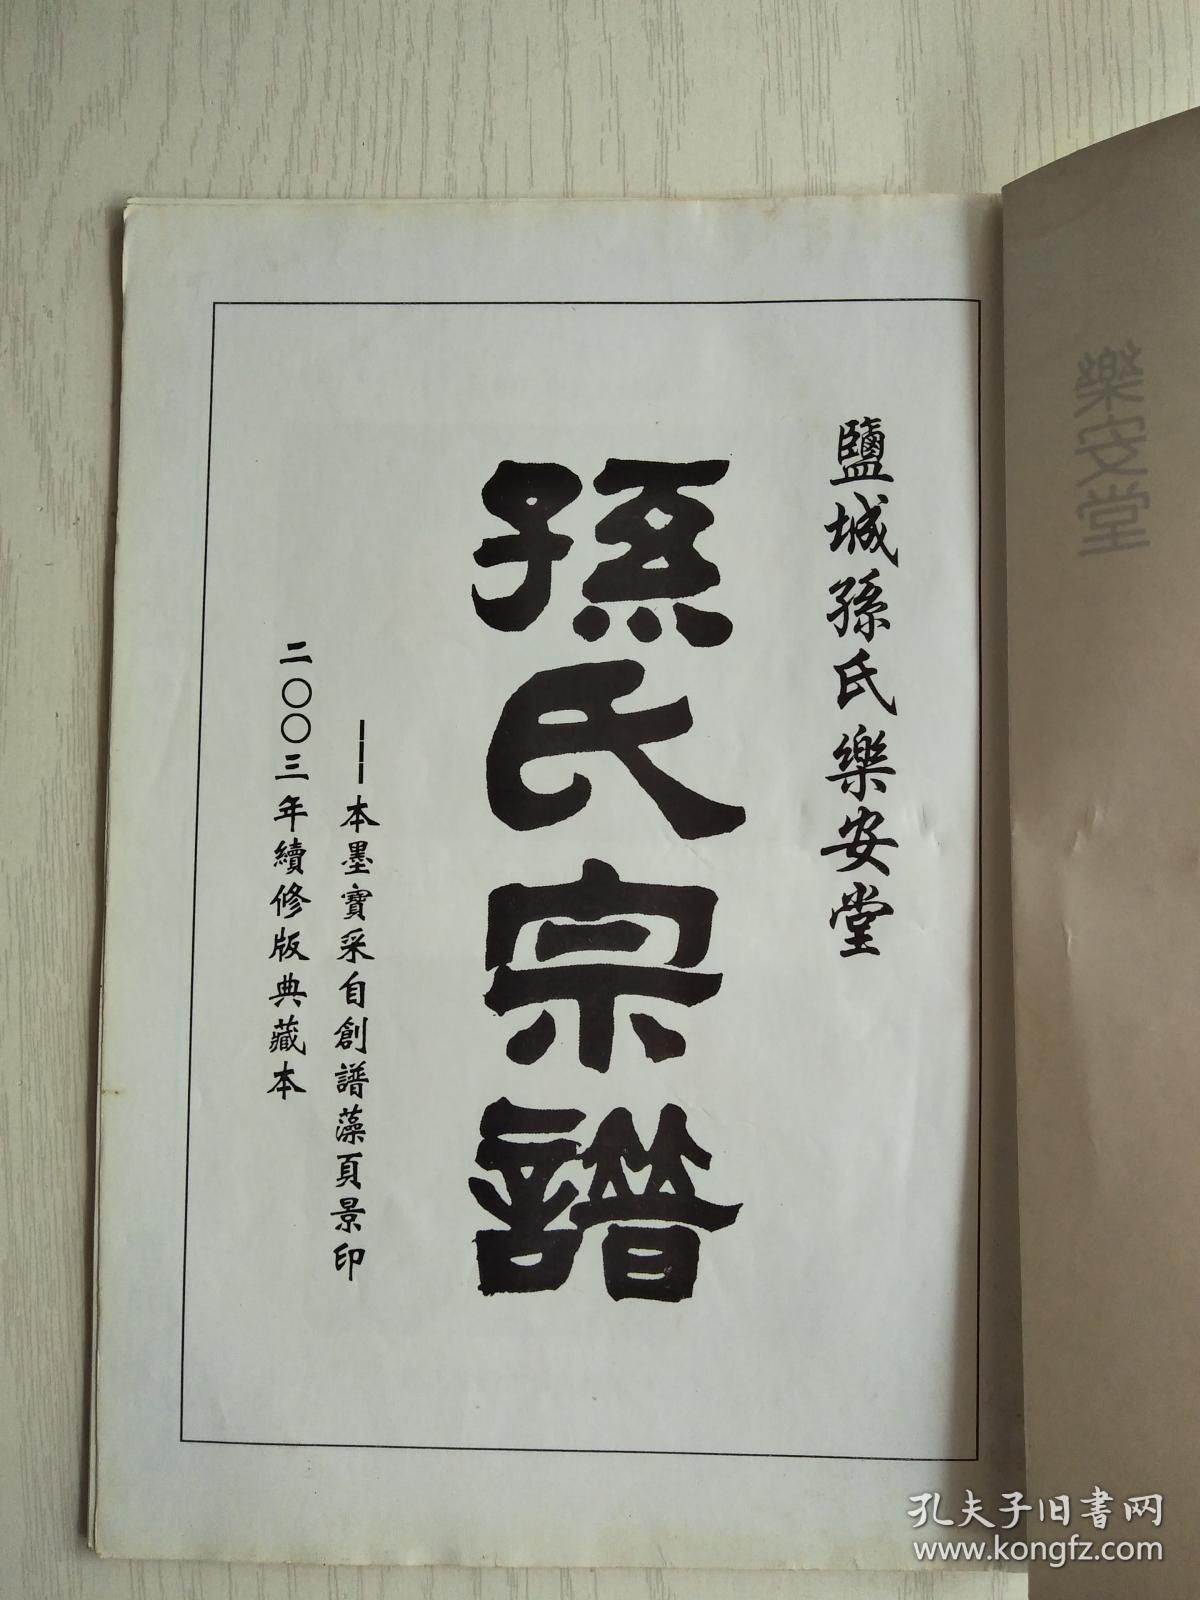 樂安堂
鹽城孫氏樂安堂
孫氏宗譜
——本墨寶采自創譜藻頁景印
二〇〇三年續修版典藏本
孔夫子旧书网
www.kongfz.com